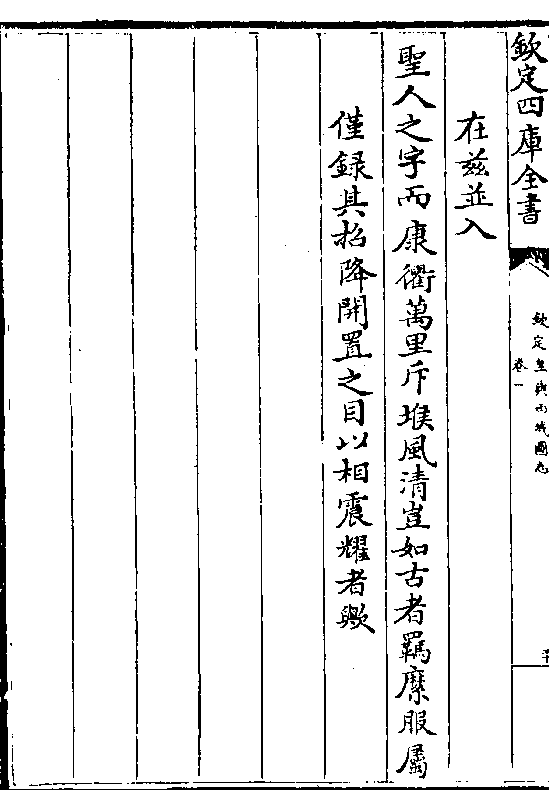 欽定四庫全書
欽定皇輿西域圖志
卷一
在兹並入
聖人之宇而康衢萬里斥堠風清豈如古者羈縻服屬
僅録其招降開置之目以相震耀者歟